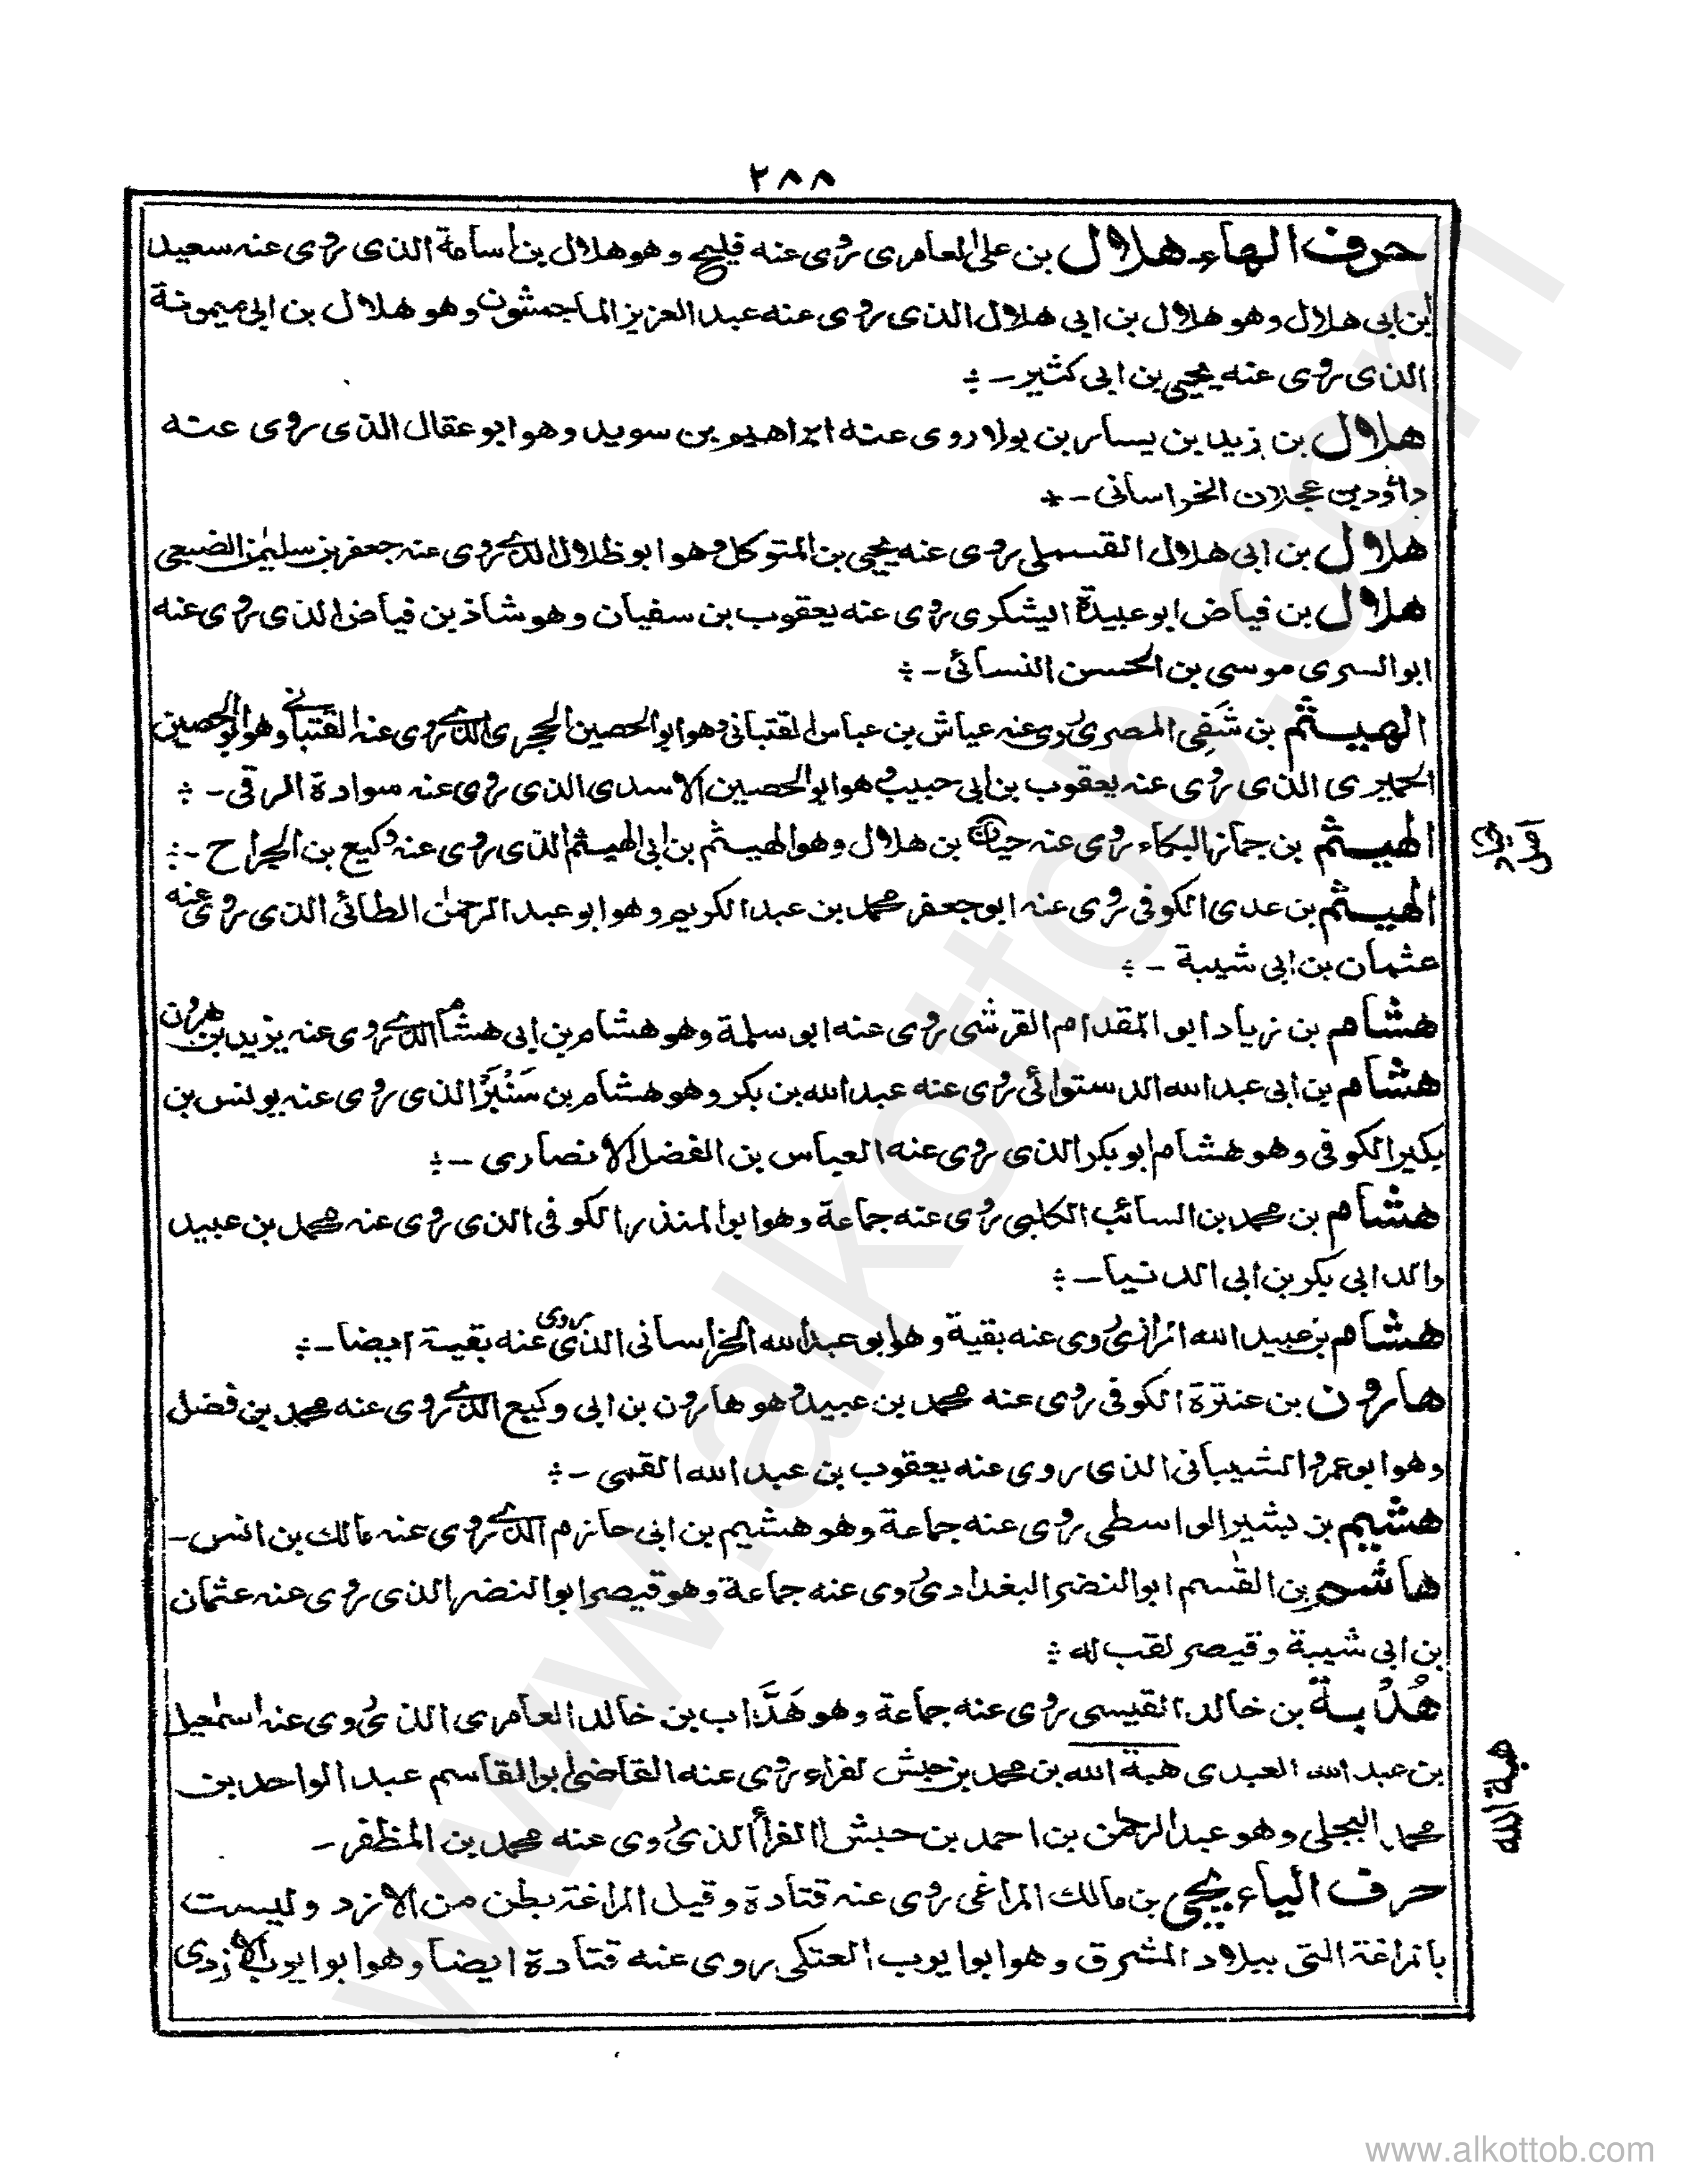 ٢٨٨
حرف الهاء هلال بن على العامرى روى عنه فليح وهو هلال بن اسامة الذى روى عنه سعيد
ابن ابى هلال وهو هلال بن ابى هلال الذى روى عنه عبد العزيز الماجشون وهو هلال بن ابى ميمونة
الذى روى عنه يحيى بن ابى كثير -
هلال بن زيد بن يسار بن بولا روى عنه ابراهيم بن سويد وهو ابو عقال الذى روى عنه
داؤد بن عجلان الخراسانى -
هلال بن ابى هلال القسملى روى عنه يحيى بن المتوكل وهو ابو ظلال الذى روى عنه جعفر بن سليمٰن الضبعى
هلال بن فياض ابو عبيدة اليشكرى روى عنه يعقوب بن سفيان وهو شاذ بن فياض الذى روى عنه
ابو السرى موسى بن الحسن النسائى -
الهيثم بن شَفِى المصرى روى عنه عياش بن عباس القتبانى وهو ابو الحصين الحجرى الذى روى عنه القتبانى وهو ابو الحصين
الحميرى الذى روى عنه يعقوب بن ابى حبيب وهو ابو الحصين الاسدى الذى روى عنه سوادة الرقى -
الهيثم بن جماز البكاء روى عنه حيان بن هلال وهو الهيثم بن ابى الهيثم الذى روى عنه وكيع بن الجراح -
الهيثم بن عدى الكوفى روى عنه ابو جعفر محمد بن عبد الكريم وهو ابو عبد الرحمٰن الطائى الذى روى عنه
عثمان بن ابى شيبة -
هشام بن زياد ابو المقدام القرشى روى عنه ابو سلمة وهو هشام بن ابى هشام الذى روى عنه يزيد بن هرون
هشام بن ابى عبد الله الدستوائى روى عنه عبد الله بن بكر وهو هشام بن سَنْبَرْ الذى روى عنه يونس بن
بكير الكوفى وهو هشام ابو بكر الذى روى عنه العباس بن الفضل الانصارى -
هشام بن محمد بن السائب الكلبى روى عنه جماعة وهو ابو المنذر الكوفى الذى روى عنه محمد بن عبيد
والد ابى بكر بن ابى الدنيا -
هشام بن عبيد الله الرازى روى عنه بقية وهو ابو عبد الله الخراسانى الذى روى عنه بقية ايضا -
هارون بن عنترة الكوفى روى عنه محمد بن عبيد وهو هارون بن ابى وكيع الذى روى عنه محمد بن فضل
وهو ابو عمرو الشيبانى الذى روى عنه يعقوب بن عبد الله القمى -
هشيم بن بشير الواسطى روى عنه جماعة وهو هشيم بن ابى حازم الذى روى عنه مالك بن انس -
هاشم بن القٰسم ابو النضر البغدادى روى عنه جماعة وهو قيصر ابو النضر الذى روى عنه عثمان
بن ابى شيبة وقيصر لقب له
هُدْبة بن خالد القيسى روى عنه جماعة وهو هَدَّاب بن خالد العامرى الذى روى عنه اسمٰعيل
بن عبد الله العبدى هبة الله بن محمد بن حبش لفراء روى عنه القاضى ابو القاسم عبد الواحد بن
هبة الله
محمد البجلى وهو عبد الرحمن بن احمد بن حبش الفرأ الذى روى عنه محمد بن المظفر -
حرف الياء يحيى بن مالك المراغى روى عنه قتادة وقيل المراغة بطن من الازد وليست
بالمراغة التى ببلاد المشرق وهو ابو ايوب العتكى روى عنه قتادة ايضا وهو ابو ايوب الازدى
www.alkottob.com
www.alkottob.com